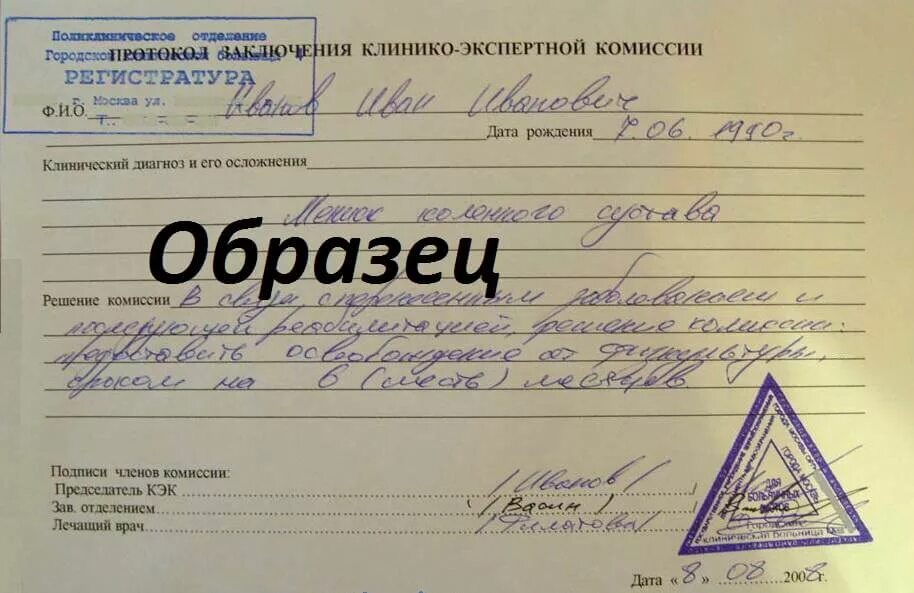 Поликлиническое отделение
ПРОТОКОЛ ЗАКЛЮЧЕНИЯ КЛИНИКО-ЭКСПЕРТНОЙ КОМИССИИ
РЕГИСТРАТУРА
г. Москва ул.
Ф.И.О. Иванов Иван Иванович
Дата рождения 7.06. 1990г.
Клинический диагноз и его осложнения
Мениск коленного сустава
Образец
Решение комиссии В связи с перенесенным заболеванием и
последующей реабилитацией, решение комиссии:
предоставить освобождение от физкультуры,
сроком на 6 (шесть) месяцев.
Подписи членов комиссии:
Председатель КЭК /Иванов/
Зав. отделением (Васин)
Лечащий врач /Филатова/
ДЛЯ
БОЛЬНИЧНЫХ
ЛИСТОВ
Городская
клиническая больница
Дата «8» 08 2008г.